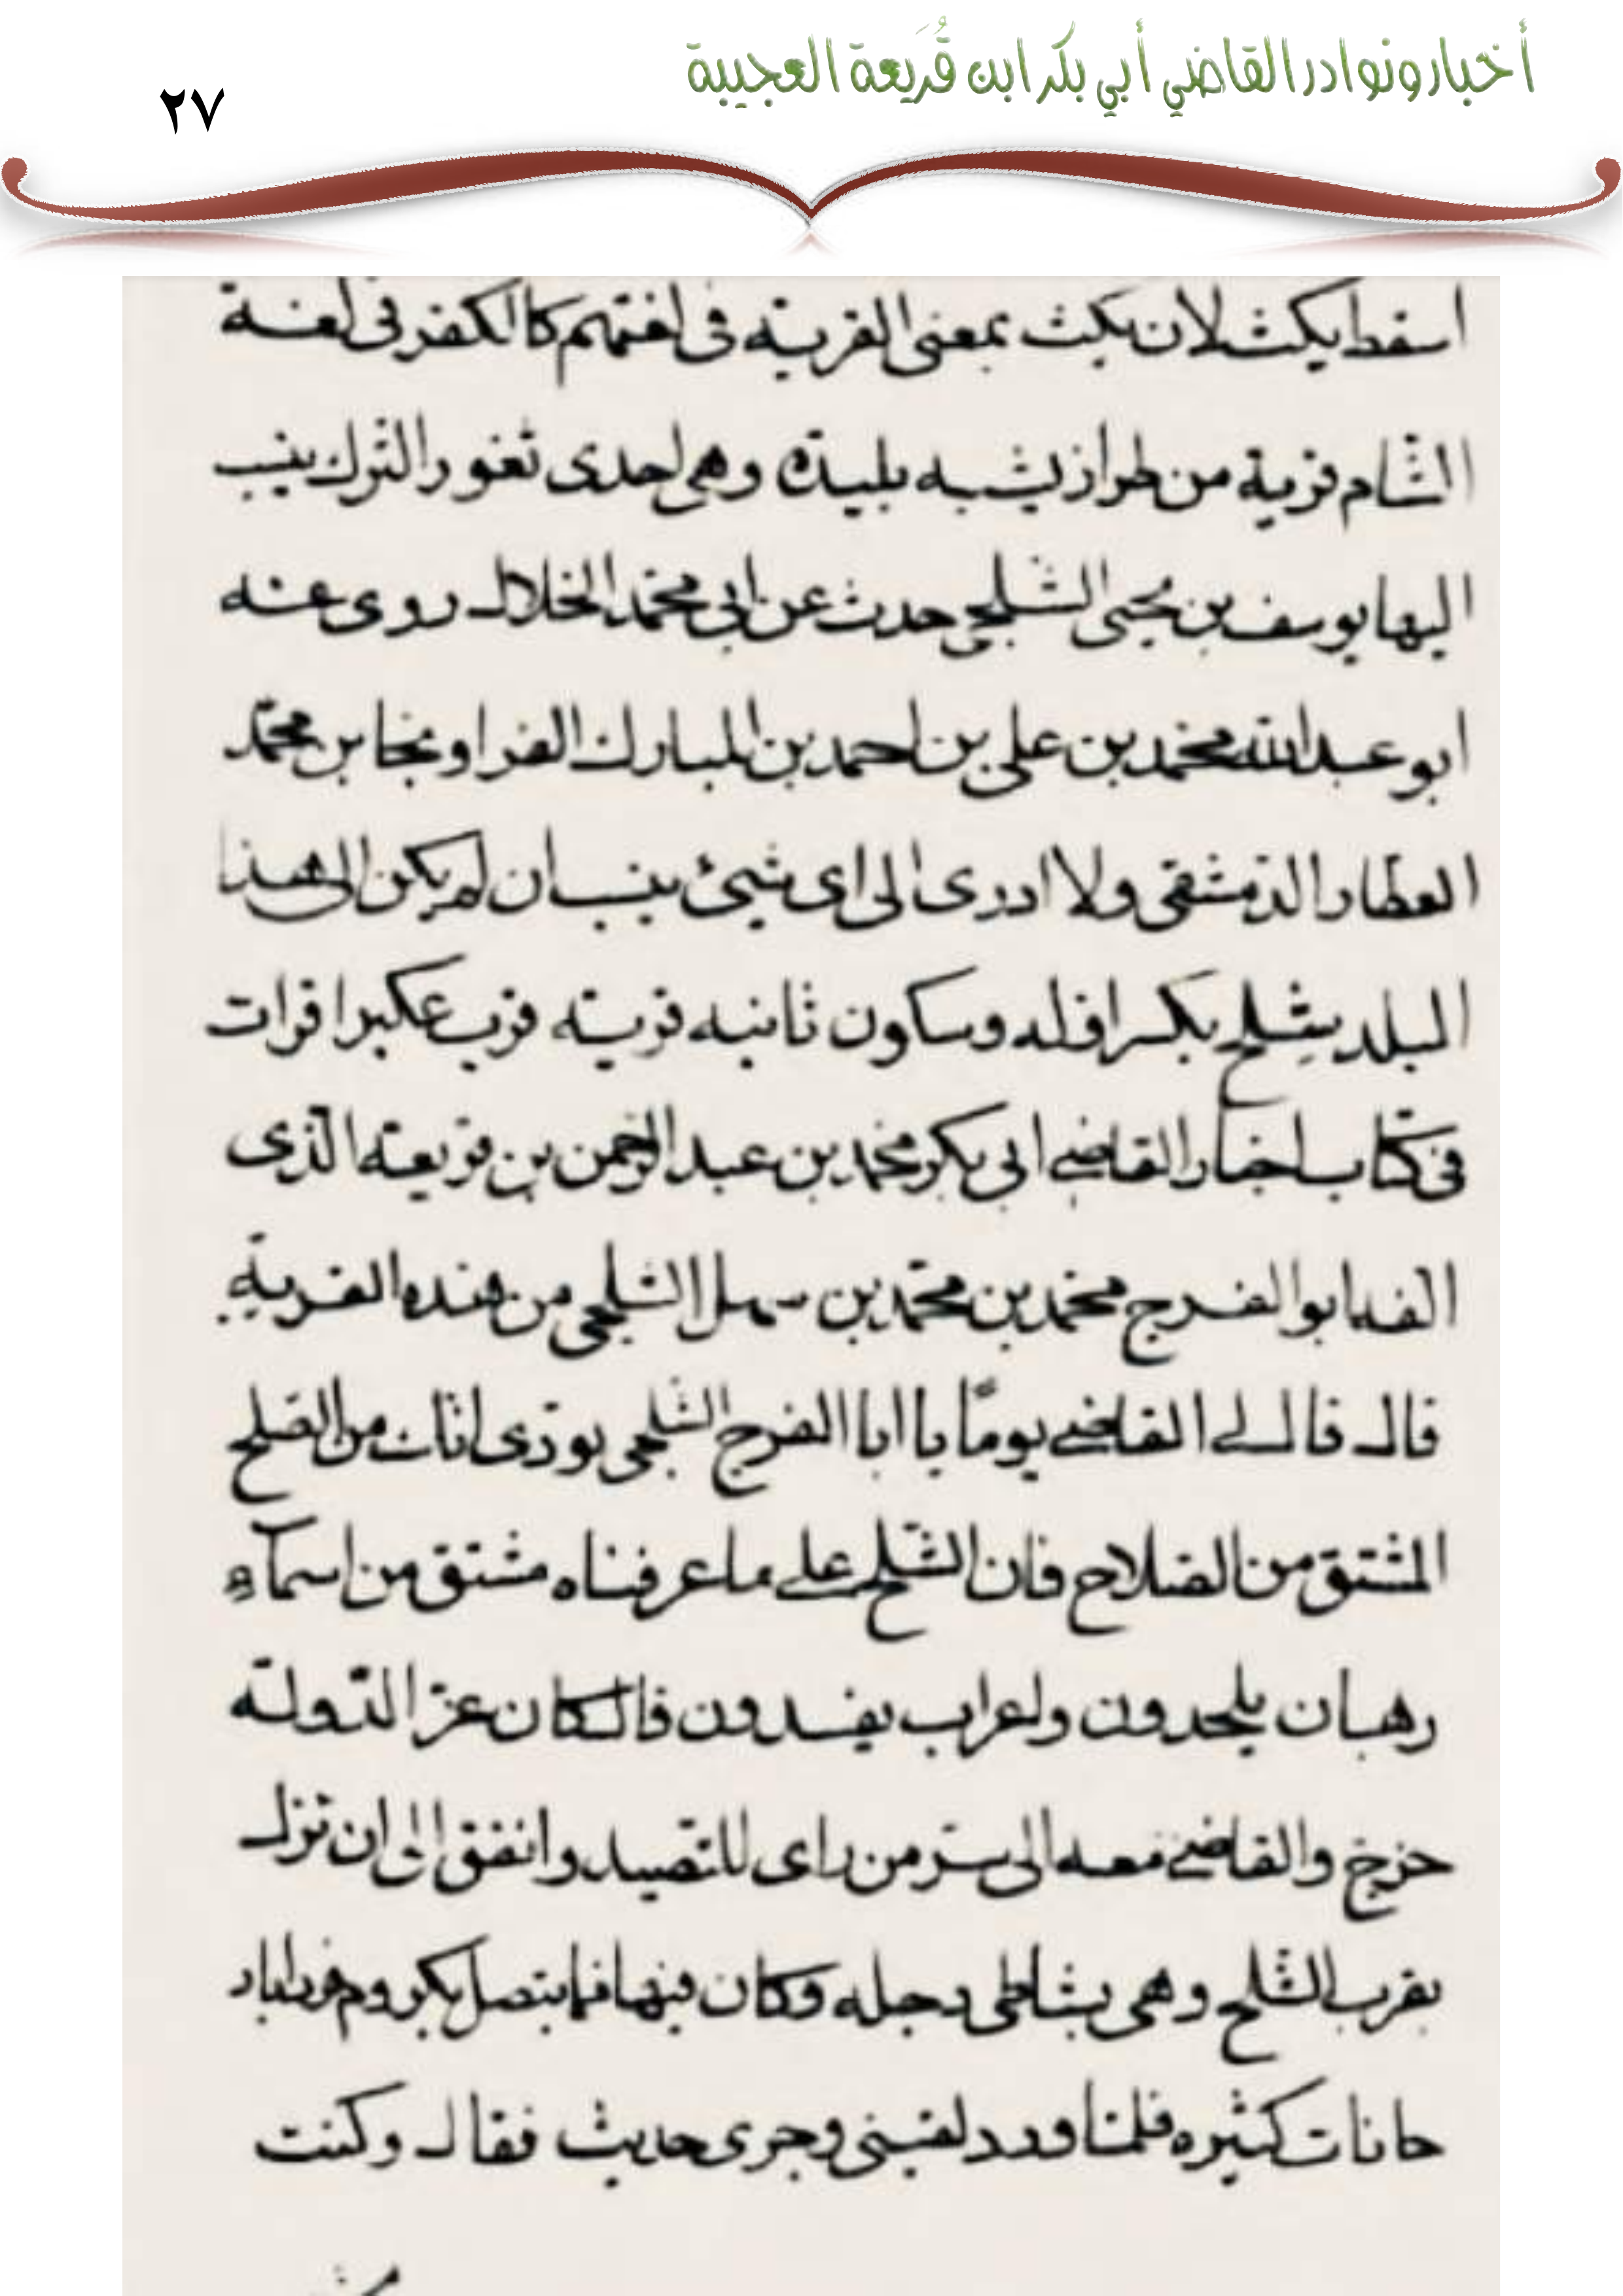 أخبار ونوادر القاضي أبي بكر ابن قُرَيعة العجيبة
٢٧
اسقط يكث لان يكث بمعنى القرية فى لغتهم كالكفر فى لغة
الشام قرية من طراز يشبه بليدة وهى احدى ثغور الترك ينسب
اليها يوسف بن يحيى الشلجى حدث عن ابى محمد الخلال روى عنه
ابو عبد الله محمد بن على بن احمد بن المبارك الفرا ونجا بن محمد
العطار الدمشقى ولا ادرى الى اى شيئ ينسب ان لم يكن الى هذا
البلد شِلح بكسر اوله وسكون ثانيه قرية قرب عكبرا قرات
فى كتاب اخبار القاضى ابى بكر محمد بن عبد الرحمن بن قريعة الذى
الفه ابو الفرج محمد بن محمد بن سهل الشلحى من هذه القرية
قال قال لى القاضى يومًا يا ابا الفرج الشلجى اثات من الصلح
المشتق من الصلاح فان الشلح على ما عرفناه مشتق من اسماء
رهبان يلحدون واعراب يفسدون قال كان عز الدولة
خرج والقاضى معه الى سر من راى للتصيد واتفق الى ان نزل
بقرب الشلح وهى بشاطى دجله وكان فيها فيما يتصل بكروم
حانات كثيره فلما ورد لقينى وجرى حديث فقال وكنت